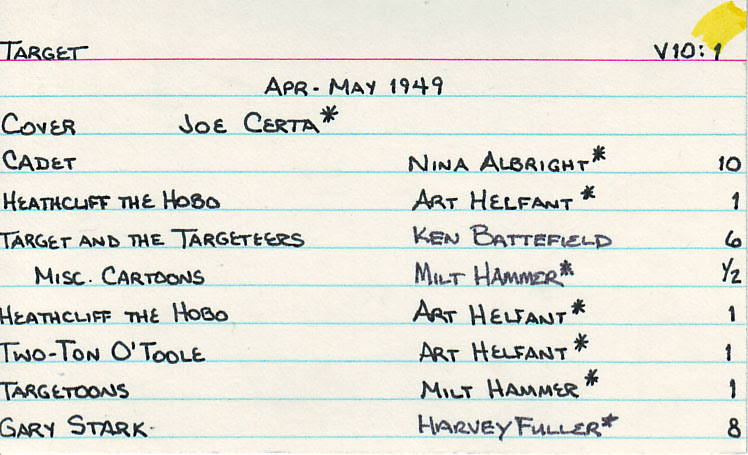 TARGET V10:1
APR-MAY 1949
COVER JOE CERTA*
CADET NINA ALBRIGHT* 10
HEATHCLIFF THE HOBO ART HELFANT* 1
TARGET AND THE TARGETEERS KEN BATTEFIELD 6
MISC. CARTOONS MILT HAMMER* 1/2
HEATHCLIFF THE HOBO ART HELFANT* 1
TWO-TON O'TOOLE ART HELFANT* 1
TARGETOONS MILT HAMMER* 1
GARY STARK HARVEY FULLER* 8